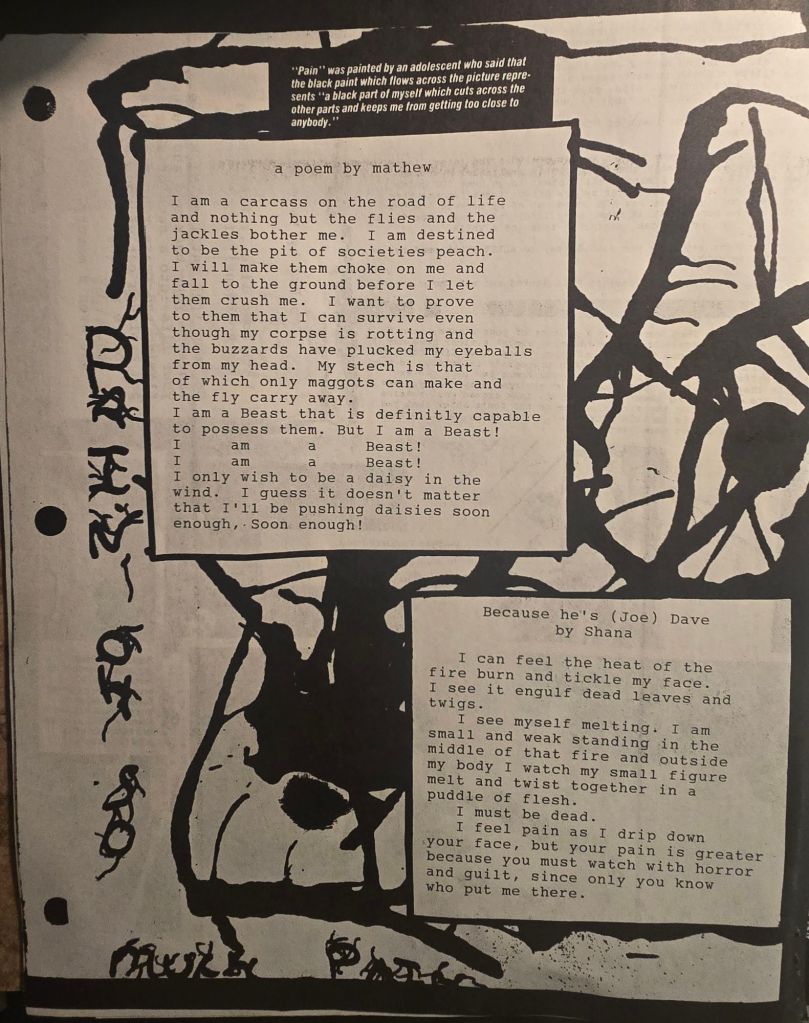 "Pain" was painted by an adolescent who said that
the black paint which flows across the picture repre-
sents "a black part of myself which cuts across the
other parts and keeps me from getting too close to
anybody."
a poem by mathew
I am a carcass on the road of life
and nothing but the flies and the
jackles bother me. I am destined
to be the pit of societies peach.
I will make them choke on me and
fall to the ground before I let
them crush me. I want to prove
to them that I can survive even
though my corpse is rotting and
the buzzards have plucked my eyeballs
from my head. My stech is that
of which only maggots can make and
the fly carry away.
I am a Beast that is definitly capable
to possess them. But I am a Beast!
I am a Beast!
I am a Beast!
I only wish to be a daisy in the
wind. I guess it doesn't matter
that I'll be pushing daisies soon
enough, Soon enough!
Because he's (Joe) Dave
by Shana
I can feel the heat of the
fire burn and tickle my face.
I see it engulf dead leaves and
twigs.
I see myself melting. I am
small and weak standing in the
middle of that fire and outside
my body I watch my small figure
melt and twist together in a
puddle of flesh.
I must be dead.
I feel pain as I drip down
your face, but your pain is greater
because you must watch with horror
and guilt, since only you know
who put me there.